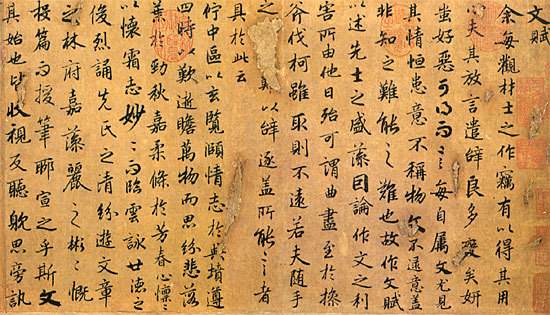 文賦
余每觀材士之作竊有以得其用
心夫其放言遣辭良多變矣妍
蚩好惡可得而言每自属文尤見
其情恒患意不稱物文不逮意蓋
非知之難能之難也故作文賦
以述先士之盛藻因論作文之利
害所由他日殆可謂曲盡至於操
斧伐柯雖取則不遠若夫随手
之難以辭逐蓋所能言者
具於此云
佇中區以玄覽頤情志於典墳遵
四時以歎逝瞻萬物而思紛悲落
葉於勁秋嘉柔條於芳春心懔〻
以懷霜志妙〻而臨雲詠世德之
俊烈誦先民之清紛遊文章
之林府嘉藻麗之彬〻慨
投篇而援筆聊宣之乎斯文
其始也皆收視反聽耽思旁訊